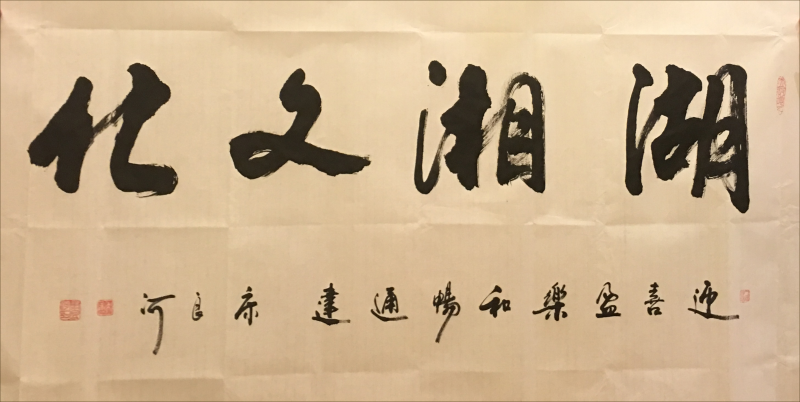 湖湘文化
迎喜盈樂和暢通建康良河